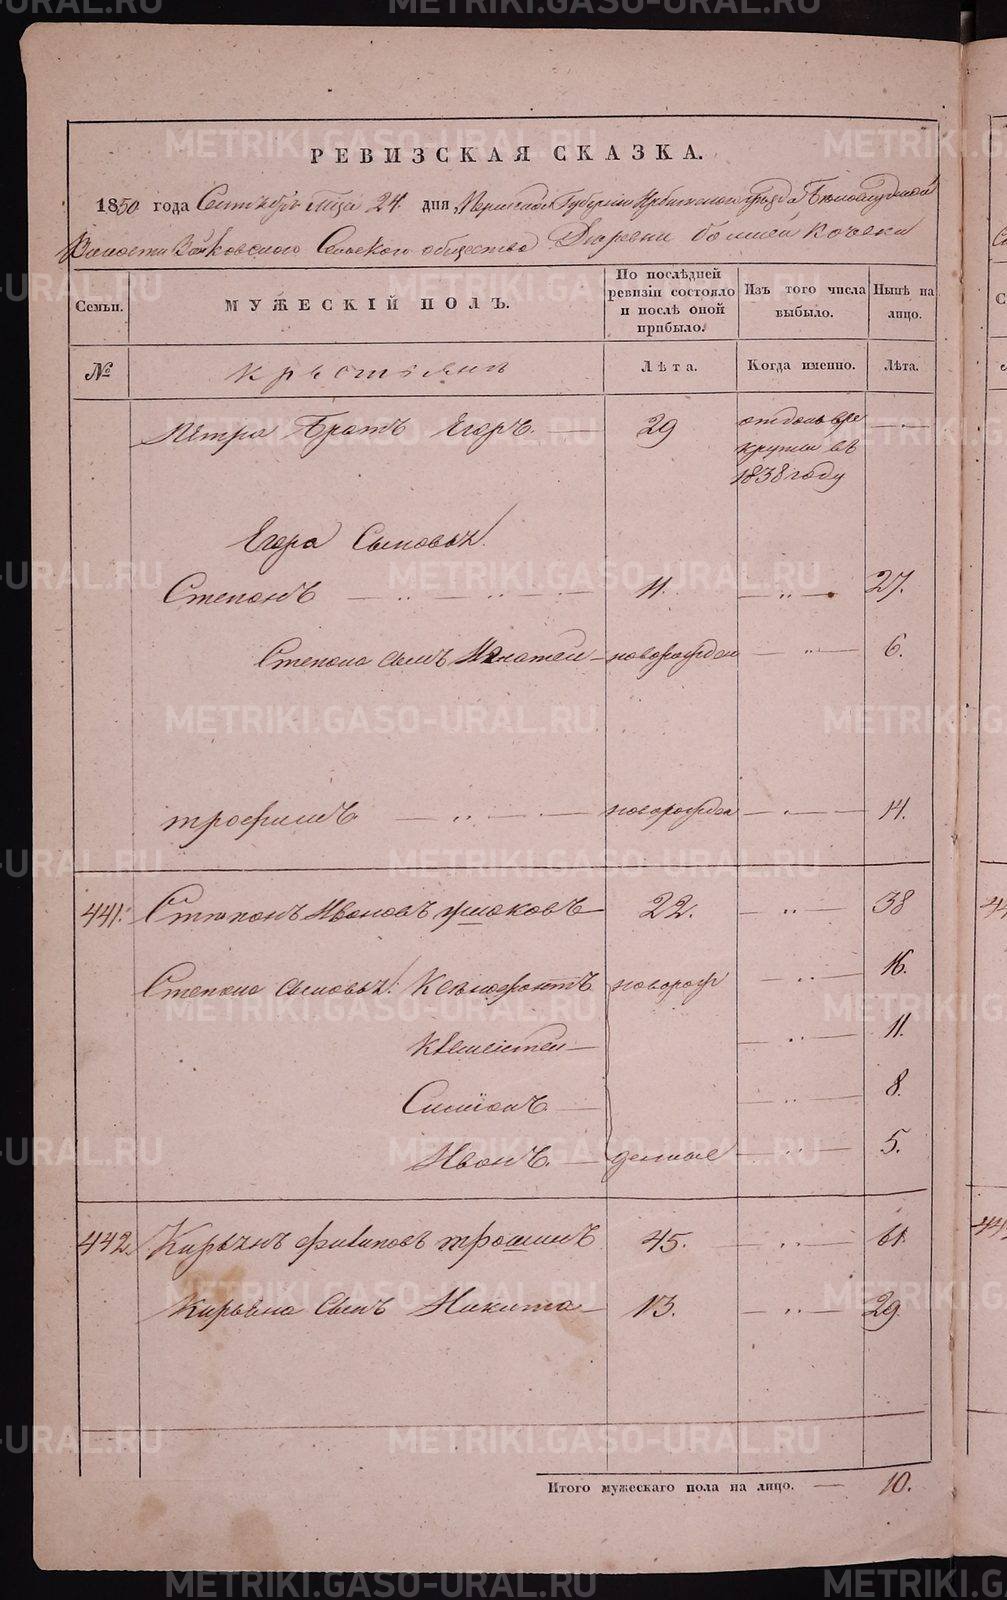 РЕВИЗСКАЯ СКАЗКА.
1850 года Сентября м̃ца 24 дня, Пермской Губернии Ирбитского уезда Белослудской
Волости Вайковского Сельского общества Деревни большей Кочевки
Семьи. МУЖЕСКІЙ ПОЛЪ. По послѣдней ревизіи состояло и послѣ оной прибыло. Изъ того числа выбыло. Нынѣ на лицо.
№ крестьянъ Лѣта. Когда именно. Лѣта.
Петра Братъ Егоръ. 29 отданъ въ ре
круты въ
1838 году
Егора Сыновья
Степанъ 11. 27.
Степана сынъ Игнатей новорожден 6.
трофимъ новорожден 14.
441. Степанъ Ивановъ ушаковъ 22. 38
Степана сыновья: Ксенофонтъ новорож 16.
Клементей 11.
Симіонъ 8.
Иванъ. денные 5.
442. Кирьянъ филиповъ трошинъ 45. 61.
Кирьяна Сынъ Никита 13. 29.
Итого мужескаго пола на лицо. 10.
METRIKI.GASO-URAL.RU